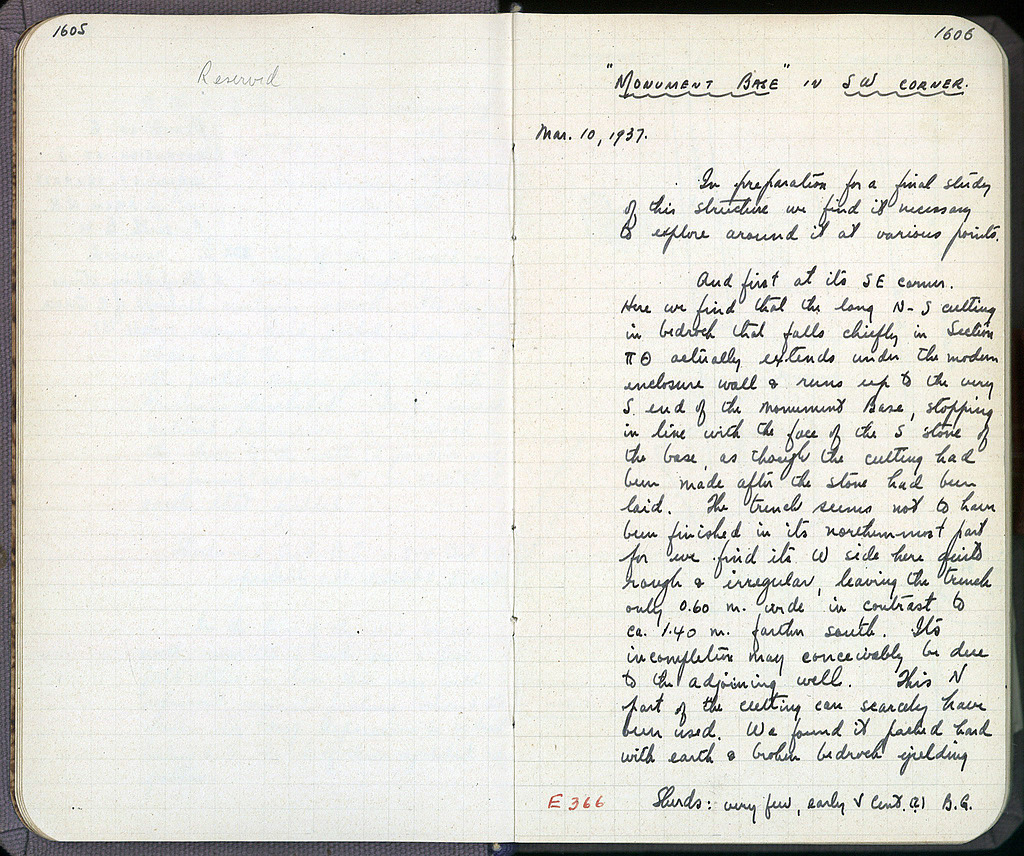 1605
Reserved
1606
"MONUMENT BASE" IN SW CORNER.
Mar. 10, 1937.
In preparation for a final study
of this structure we find it necessary
to explore around it at various points.
And first at its SE corner.
Here we find that the long N-S cutting
in bedrock that falls chiefly in Section
ΠΘ actually extends under the modern
enclosure wall & runs up to the very
S end of the Monument Base, stopping
in line with the face of the S stone of
the base, as though the cutting had
been made after the stone had been
laid. The trench seems not to have
been finished in its northernmost part
for we find its W side here quite
rough & irregular, leaving the trench
only 0.60 m. wide in contrast to
ca. 1.40 m. farther south. Its
incompletion may conceivably be due
to the adjoining well. This N
part of the cutting can scarcely have
been used. We found it packed hard
with earth & broken bedrock yielding
E 366 Sherds: very few, early V cent. (?) B.C.